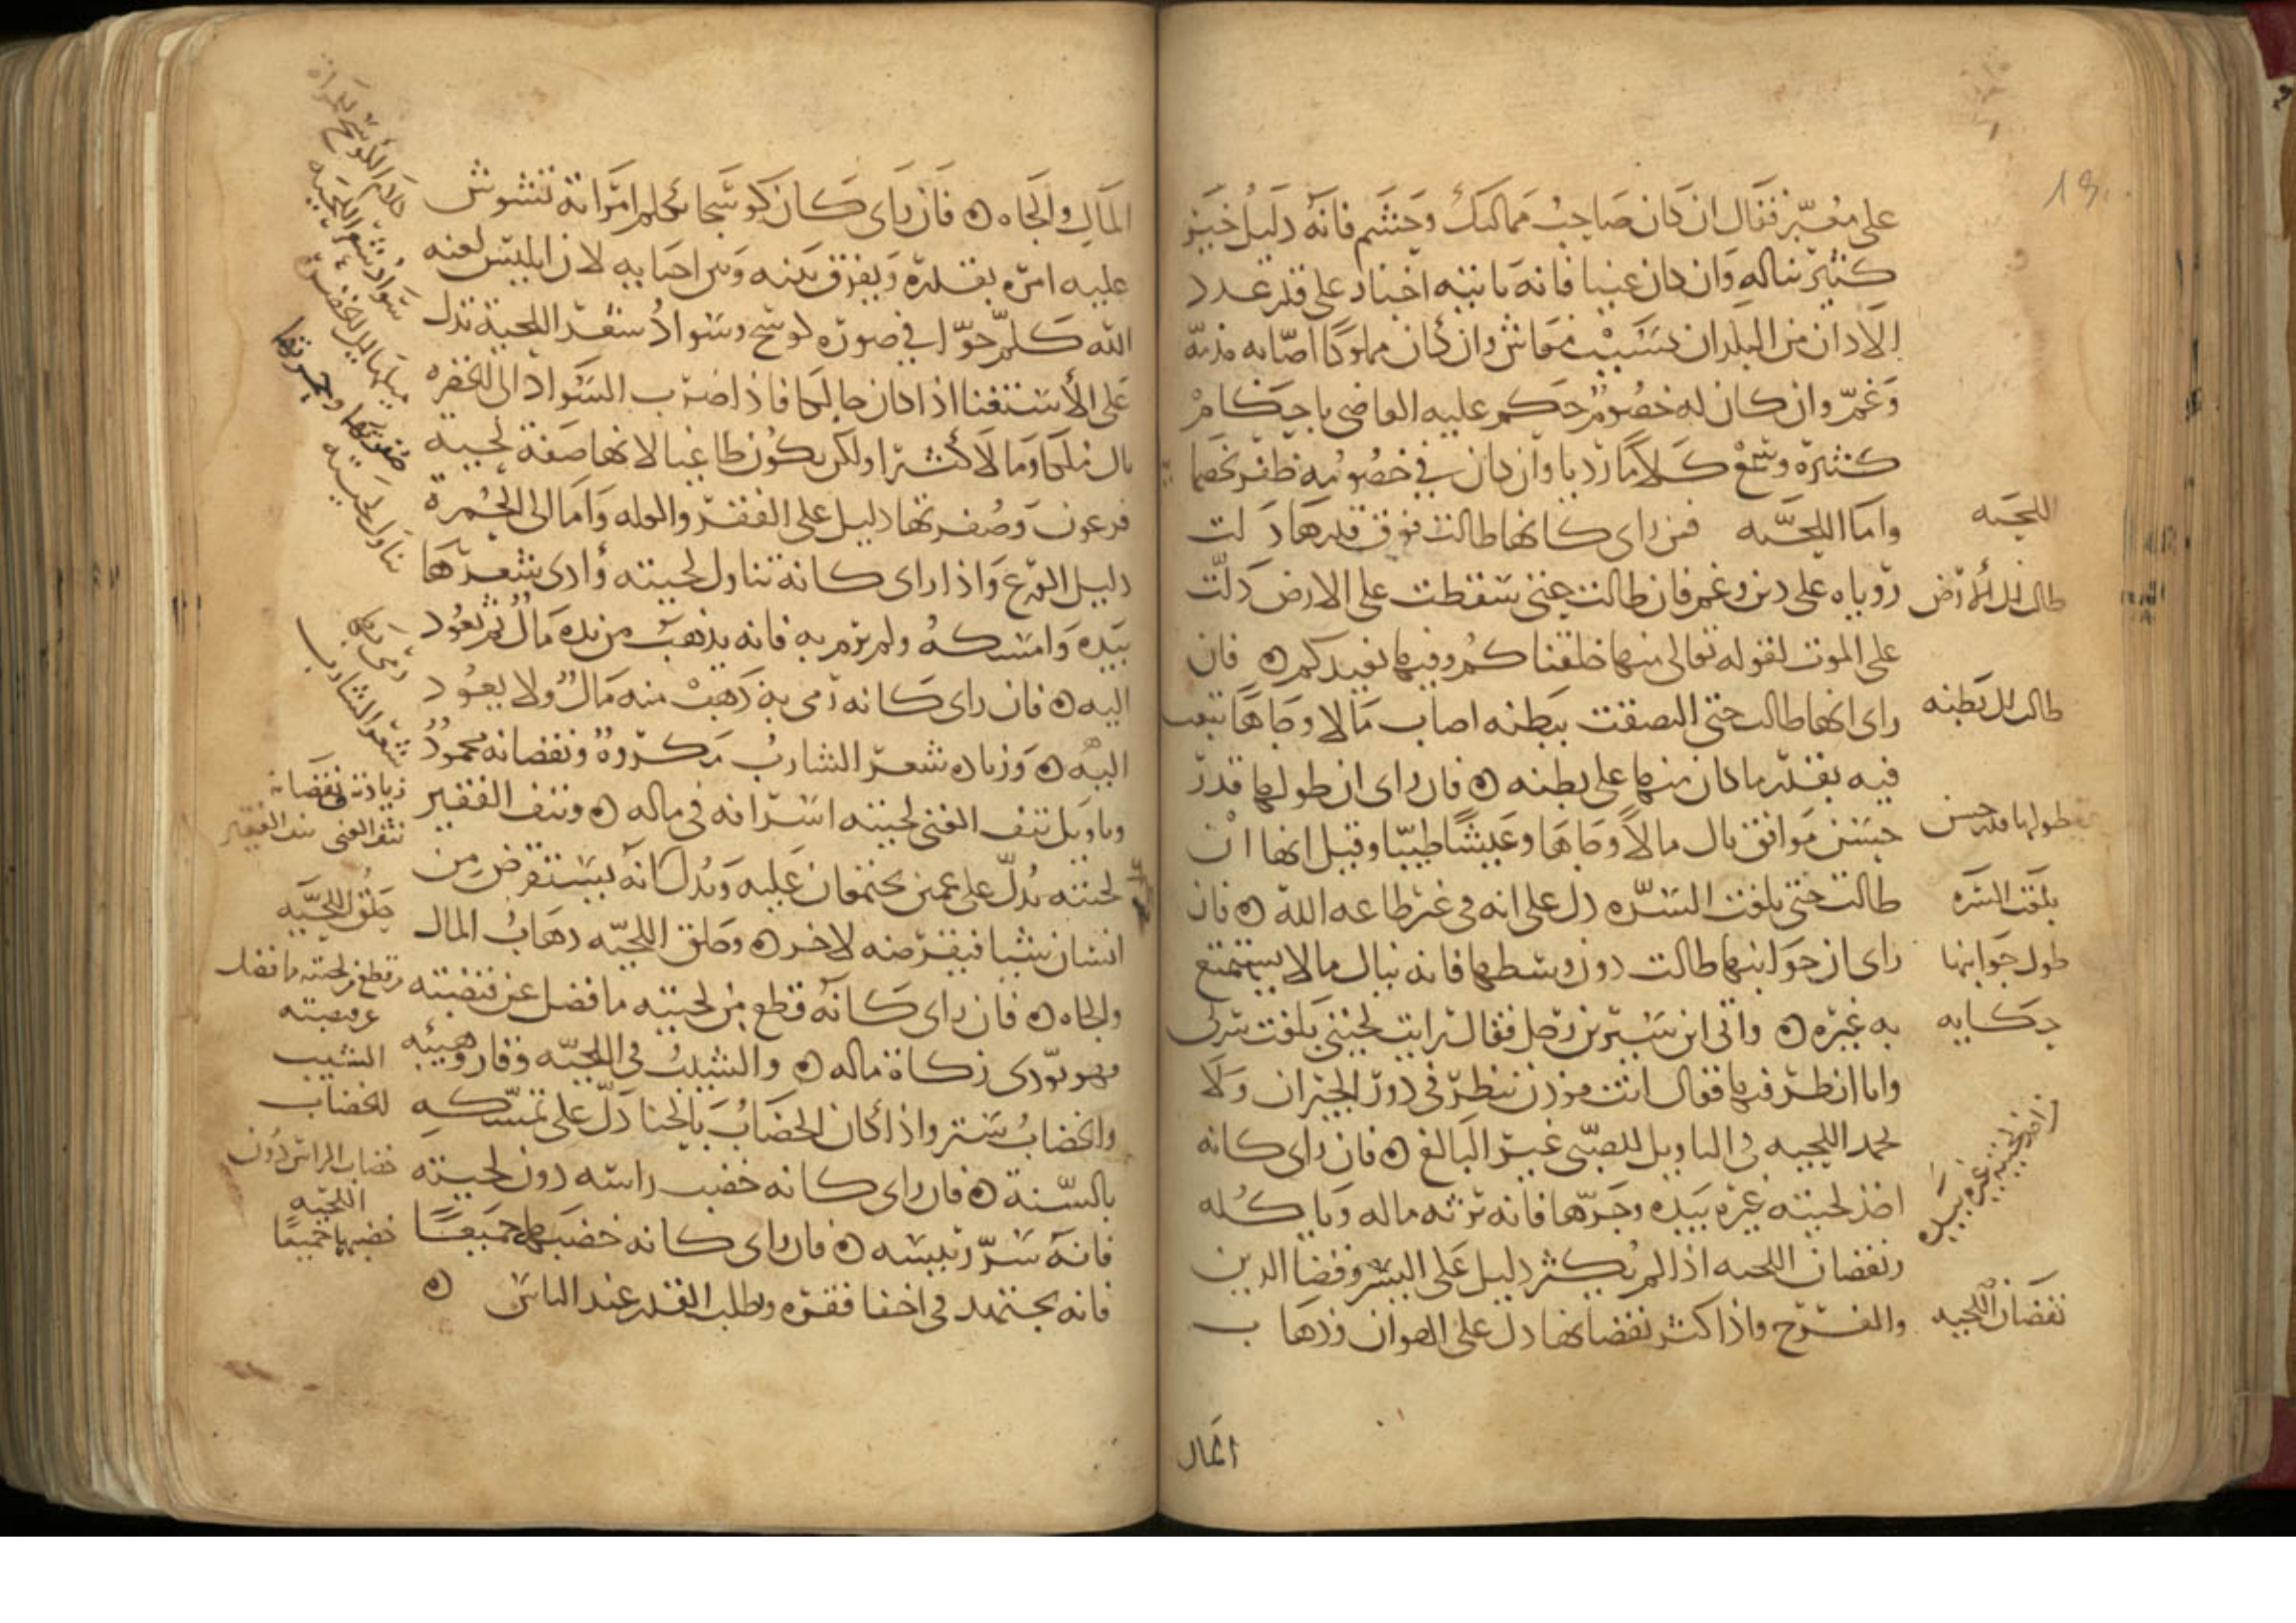 على معبر فقال ان كان صاحب مماليك وحشم فانه دليل خير
كثير يناله وان كان غنيا فانه ياتيه اخبار على قدر عدد
الاذان من البلدان بسبب معاش وان كان مملوكا اصابه مذمة
وغم وان كان له خصوم حكم عليه القاضى باحكام
كثيرة وسمع كلاما رديا وان كان في خصومه ظفر بخصمه
واما اللحيه فمن راى كانها طالت فوق قدرها دلت
روياه على دين وغم فان طالت حتى سقطت على الارض دلت
على الموت لقوله تعالى منها خلقناكم وفيها نعيدكم ۞ فان
راى انها طالت حتى التصقت ببطنه اصاب مالا وجاها يتعب
فيه بقدر ما كان منها على بطنه ۞ فان راى ان طولها قدر
حسن موافق نال مالا وجاها وعيشا طيبا وقيل انها ان
طالت حتى بلغت السره دل على انه في غير طاعه الله ۞ فان
راى ان جوانبها طالت دون وسطها فانه ينال مالا يستمتع
به غيره ۞ واتى ابن سيرين رجل فقال رايت لحيتي بلغت سرتى
وانا انظر فيها فقال انت موذن تنظر في دور الجيران ولا
تحمد اللحيه في التاويل للصبى غير البالغ ۞ فان راى كانه
اخذ لحيته غيره بيده وجرها فانه يرثه ماله وياكله
ونقصان اللحيه اذا لم يكثر دليل على اليسر وقضا الدين
والفرح واذا كثر نقصانها دل على الهوان وذهاب
المال
اللحيه
طالت الى الارض
طالت الى بطنه
طولها قدر حسن
بلغت السره
طول جوانبها
حكايه
نقصان اللحيه
المال والجاه ۞ فان راى كان كوسجا يكلم امراته تتشوش
عليه امره بقدره ويفرق بينه وبين احبابه لان ابليس لعنه
الله كلم حوا في صورة كوسج وسواد شعر اللحية تدل
على الاستغنا اذا كان حالكا فاذا ضرب السواد الى الخضره
نال ملكا ومالا كثيرا ولكن يكون طاغيا لانها صفة لحية
فرعون وصفرتها دليل على الفقر والعله واما الى الحمرة
دليل الورع واذا راى كانه تناول لحيته واذى شعرها
بيده وامسكه ولم يرم به فانه يذهب من يده مال ثم يعود
اليه ۞ فان راى كانه رمى به ذهب منه مال ولا يعود
اليه ۞ وزيادة شعر الشارب مكروه ونقصانه محمود
وتاويل نتف الغنى لحيته اسرافه في ماله ۞ ونتف الفقير
لحيته يدل على غمين يجتمعان عليه ويدل انه يستقرض من
انسان شيا فيقرضه لاخر ۞ وحلق اللحيه ذهاب المال
والجاه ۞ فان راى كانه قطع من لحيته ما فضل عن قبضته
فهو يودى زكاة ماله ۞ والشيب في اللحيه وقار وهيبه
والخضاب ستر واذا كان الخضاب بالحنا دل على تمسكه
بالسنة ۞ فان راى كانه خضب راسه دون لحيته
فانه سر رئيسه ۞ فان راى كانه خضبهما جميعا
فانه يجتهد في اخفا فقره وطلب القدر عند الناس ۞
سواد شعر اللحيه
ميلها الى الخضرة
صفرتها وحمرتها
تناول لحيته
شعر الشارب
زيادته ونقصانه
نتف الغنى نتف الفقير
حلق اللحيه
قطع من لحيته ما فضل
عن قبضته
الشيب
الخضاب
خضاب الراس دون
اللحيه
خضبهما جميعا